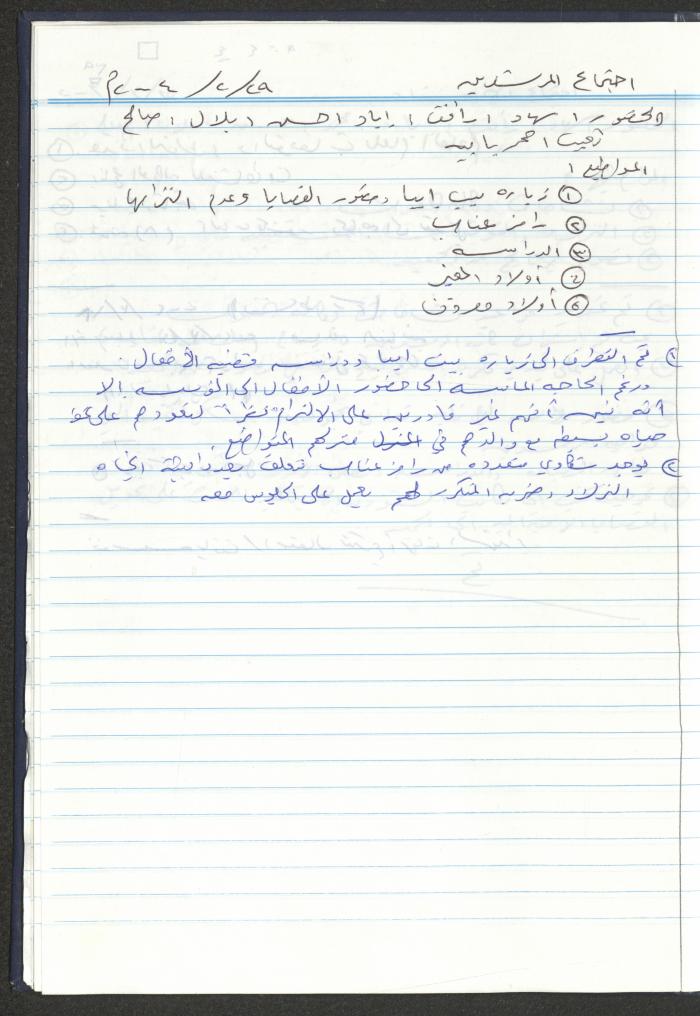 اجتماع المرشدين ٢٩/٢/٢٠٠٤م
الحضور / سهاد / رأفت / إياد / حسن / بلال / صالح
أحمر يا بيه
المواضيع /
① زيارة بيت ايبا وحضور القضايا وعدم التزامها
② رامز عناب
③ الدراسة
④ أولاد المغير
⑤ أولاد معروف
① تم التطرق الى زيارة بيت ايبا ودراسة قضية الأطفال .
ورغم الحاجة الماسة الى حضور الأطفال الى المؤسسة إلا
أنه تبين أنهم غير قادرين على الالتزام نظراً لتعودهم على
حياة بسيطة مع والدهم في منزلهم المتواضع .
② يوجد شكاوي متعددة من رامز عناب تتعلق
النزلاء وضربه المتكرر لهم يعمل على الجلوس معه